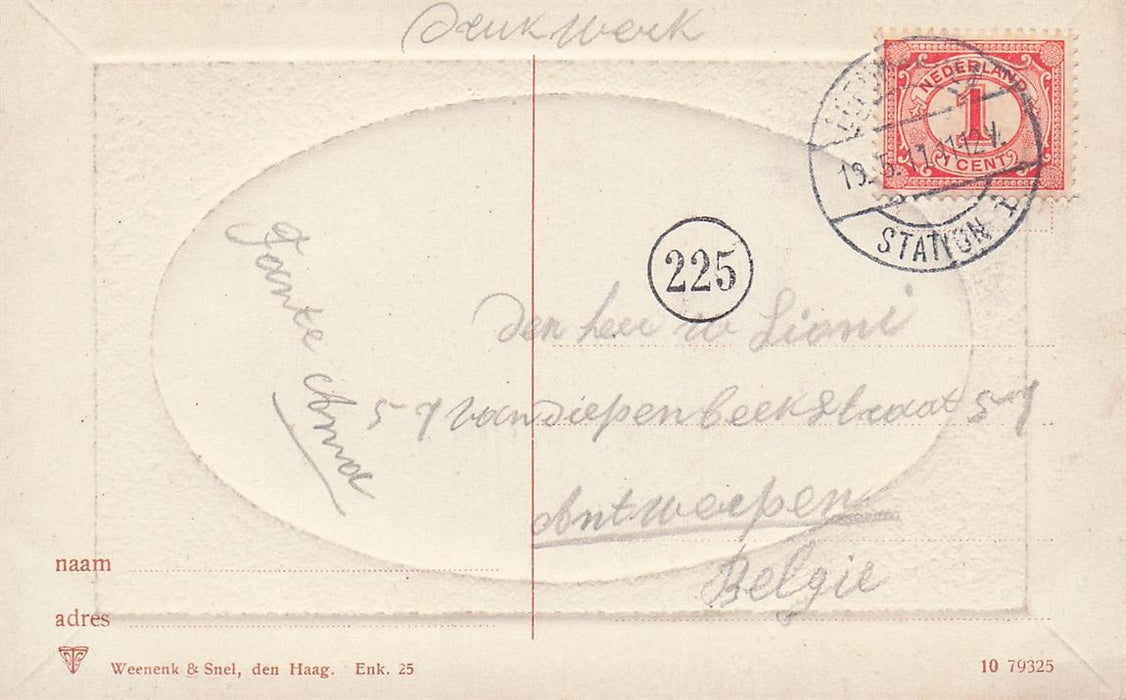 Drukwerk
NEDERLAND
1
1 CENT
12V.
STATION
225
Tante Anna
den heer w Lioni
57 van diepenbeekstraat 57
Antwerpen
Belgie
naam
adres
Weenenk & Snel, den Haag. Enk. 25
10 79325